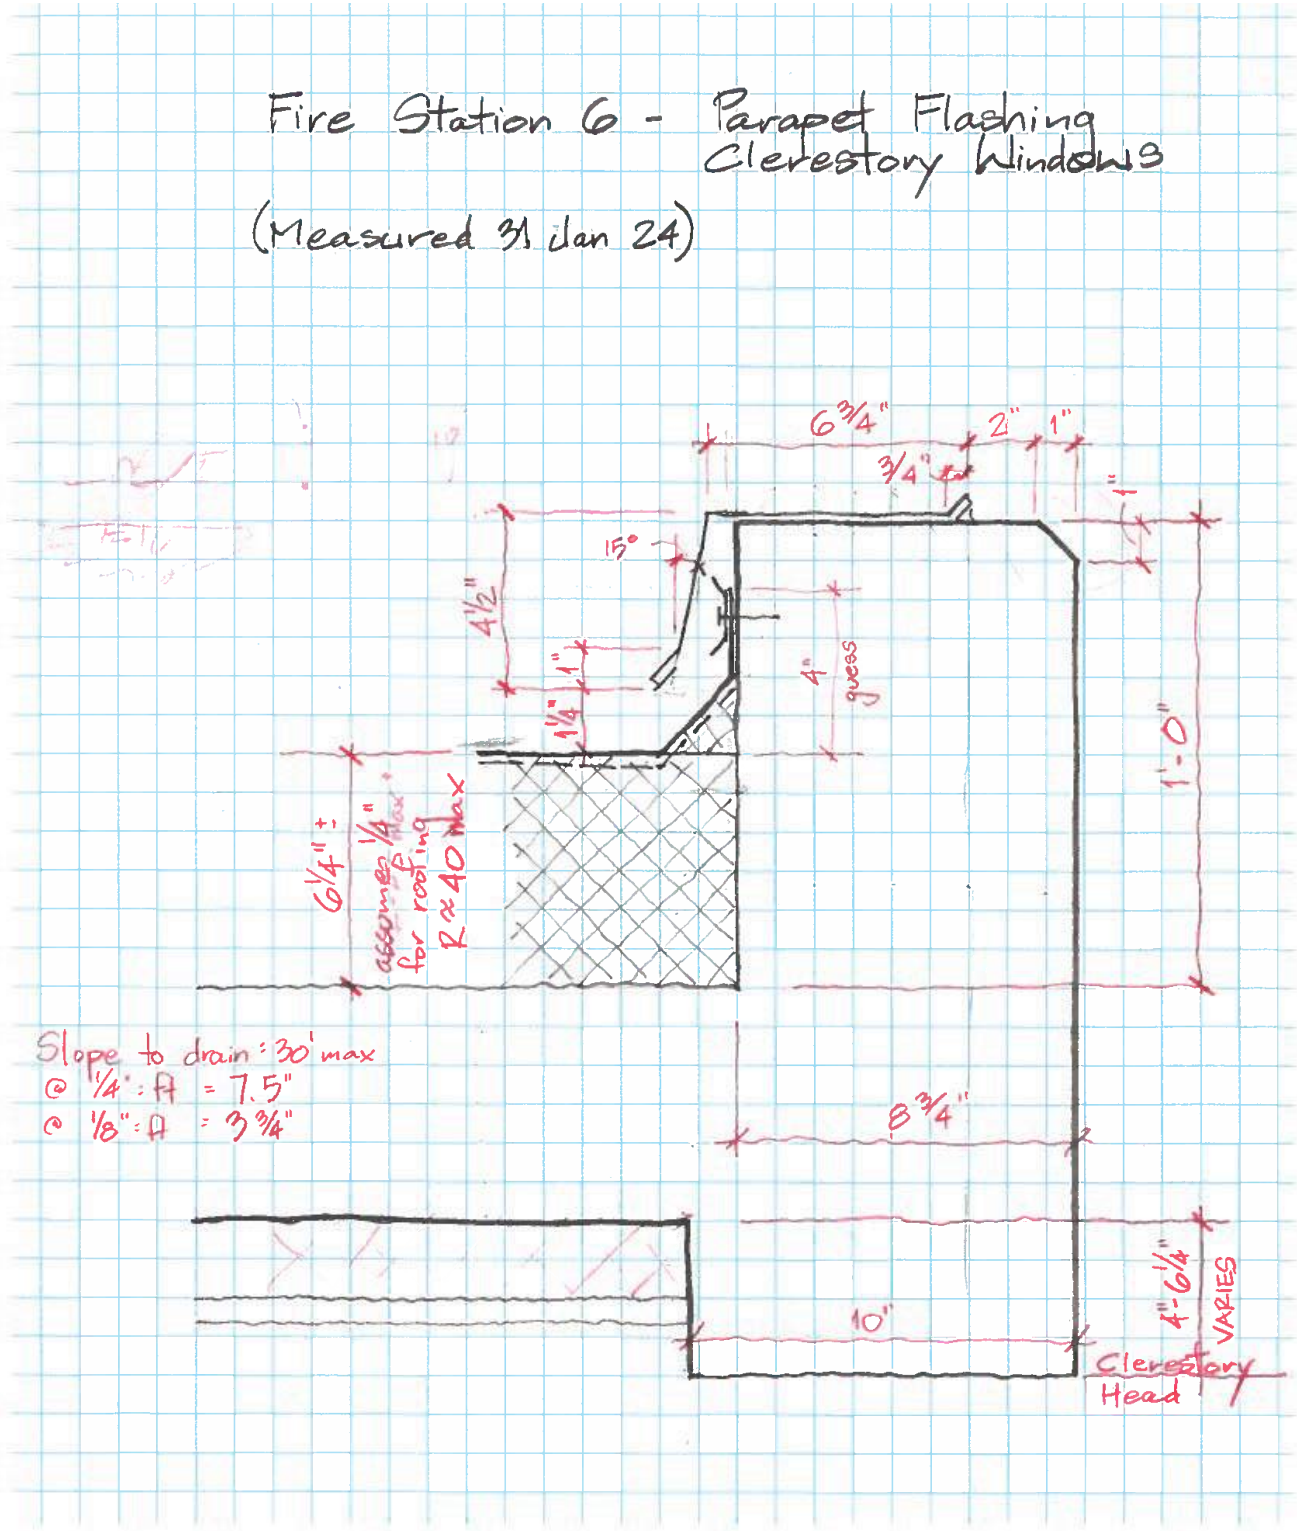 Fire Station 6 - Parapet Flashing
Clerestory Windows
(Measured 31 Jan 24)
6 3/4"
2"
1"
3/4"
1"
15°
4 1/2"
1"
1 1/4"
4"
guess
1'-0"
6 1/4" ±
assumes 1/4" max
for roofing
R ≈ 40 Max
Slope to drain: 30' max
@ 1/4": ft = 7.5"
@ 1/8": ft = 3 3/4"
8 3/4"
10"
4"-6 1/4"
VARIES
Clerestory
Head